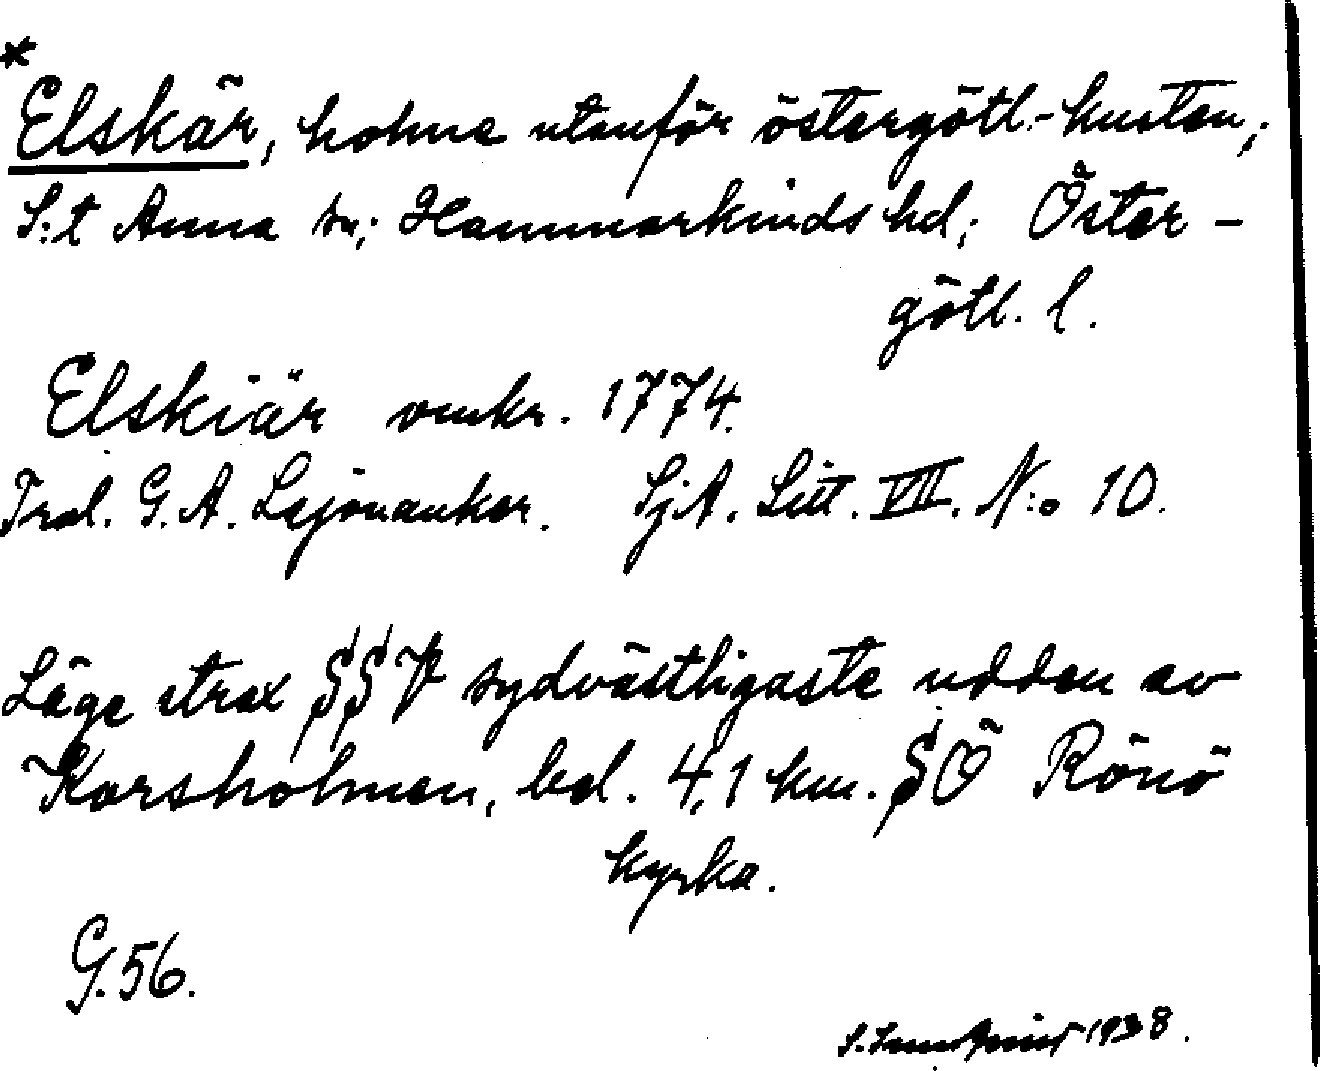 *
Elskär, holme utanför östergötl.-kusten,;
S:t Anna sn; Hammarkinds hd; Öster-
götl. l.
Elskiär omkr. 1774.
Fral. G. A. Lejonanker. SjA. Litt. VII. N:o 10.
Läge strax SSV sydvästligaste udden av
Korsholmen, bel. 4,1 km. SÖ Rönö
kyrka.
G. 56.
1938.